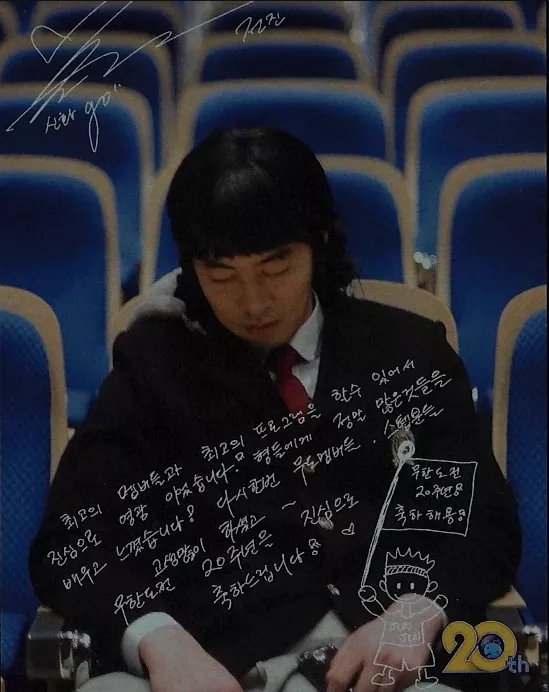 전진
신화 go!!
최고의 멤버들과 최고의 프로그램을 할수 있어서
진심으로 영광 이었습니다. 형들에게 정말 많은것들을
배우고 느꼈습니다! 다시한번 무도멤버들, 스텝분들
고생많이 하셨고 ~ 진심으로
무한도전 20주년을
축하드립니다!
무한도전
20주년
축하해용
JUN
JIN
20th